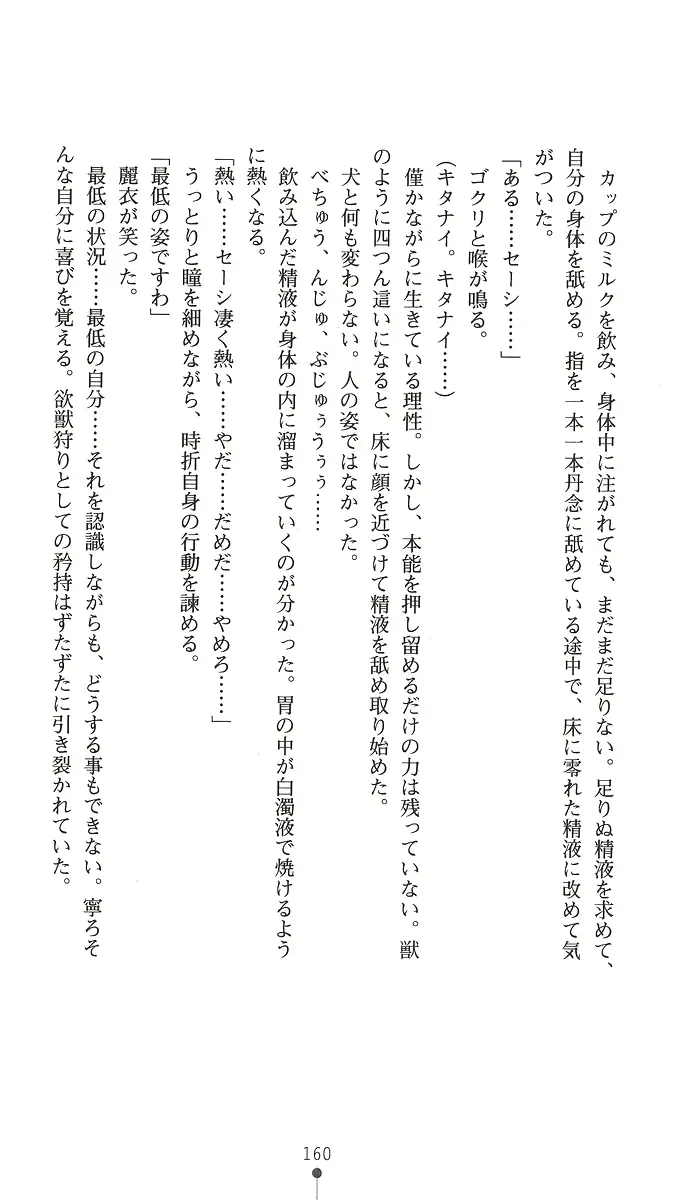 カップのミルクを飲み、身体中に注がれても、まだまだ足りない。足りぬ精液を求めて、
自分の身体を舐める。指を一本一本丹念に舐めている途中で、床に零れた精液に改めて気
がついた。
「ある……セーシ……」
ゴクリと喉が鳴る。
（キタナイ。キタナイ……）
僅かながらに生きている理性。しかし、本能を押し留めるだけの力は残っていない。獣
のように四つん這いになると、床に顔を近づけて精液を舐め取り始めた。
犬と何も変わらない。人の姿ではなかった。
べちゅう、んじゅ、ぶじゅぅうぅぅ……
飲み込んだ精液が身体の内に溜まっていくのが分かった。胃の中が白濁液で焼けるよう
に熱くなる。
「熱い……セーシ凄く熱い……やだ……だめだ……やめろ……」
うっとりと瞳を細めながら、時折自身の行動を諫める。
「最低の姿ですわ」
麗衣が笑った。
最低の状況……最低の自分……それを認識しながらも、どうする事もできない。寧ろそ
んな自分に喜びを覚える。欲獣狩りとしての矜持はずたずたに引き裂かれていた。
160